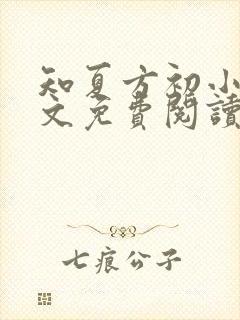 知夏方初小
文免費閱讀
七痕公子